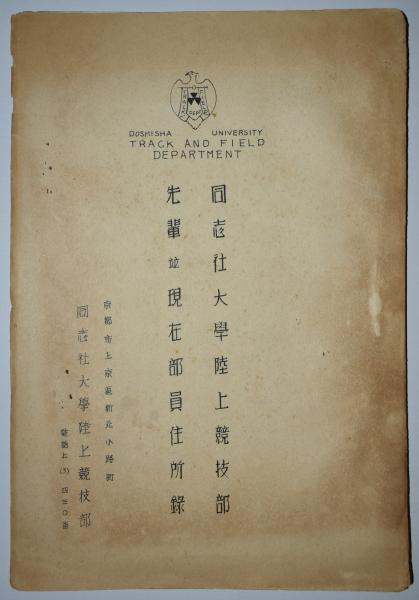 DOSHISHA UNIVERSITY
TRACK AND FIELD
DEPARTMENT
同志社大學陸上競技部
先輩竝現在部員住所錄
京都市上京區新北小路町
同志社大學陸上競技部
電話上(3)四三〇番